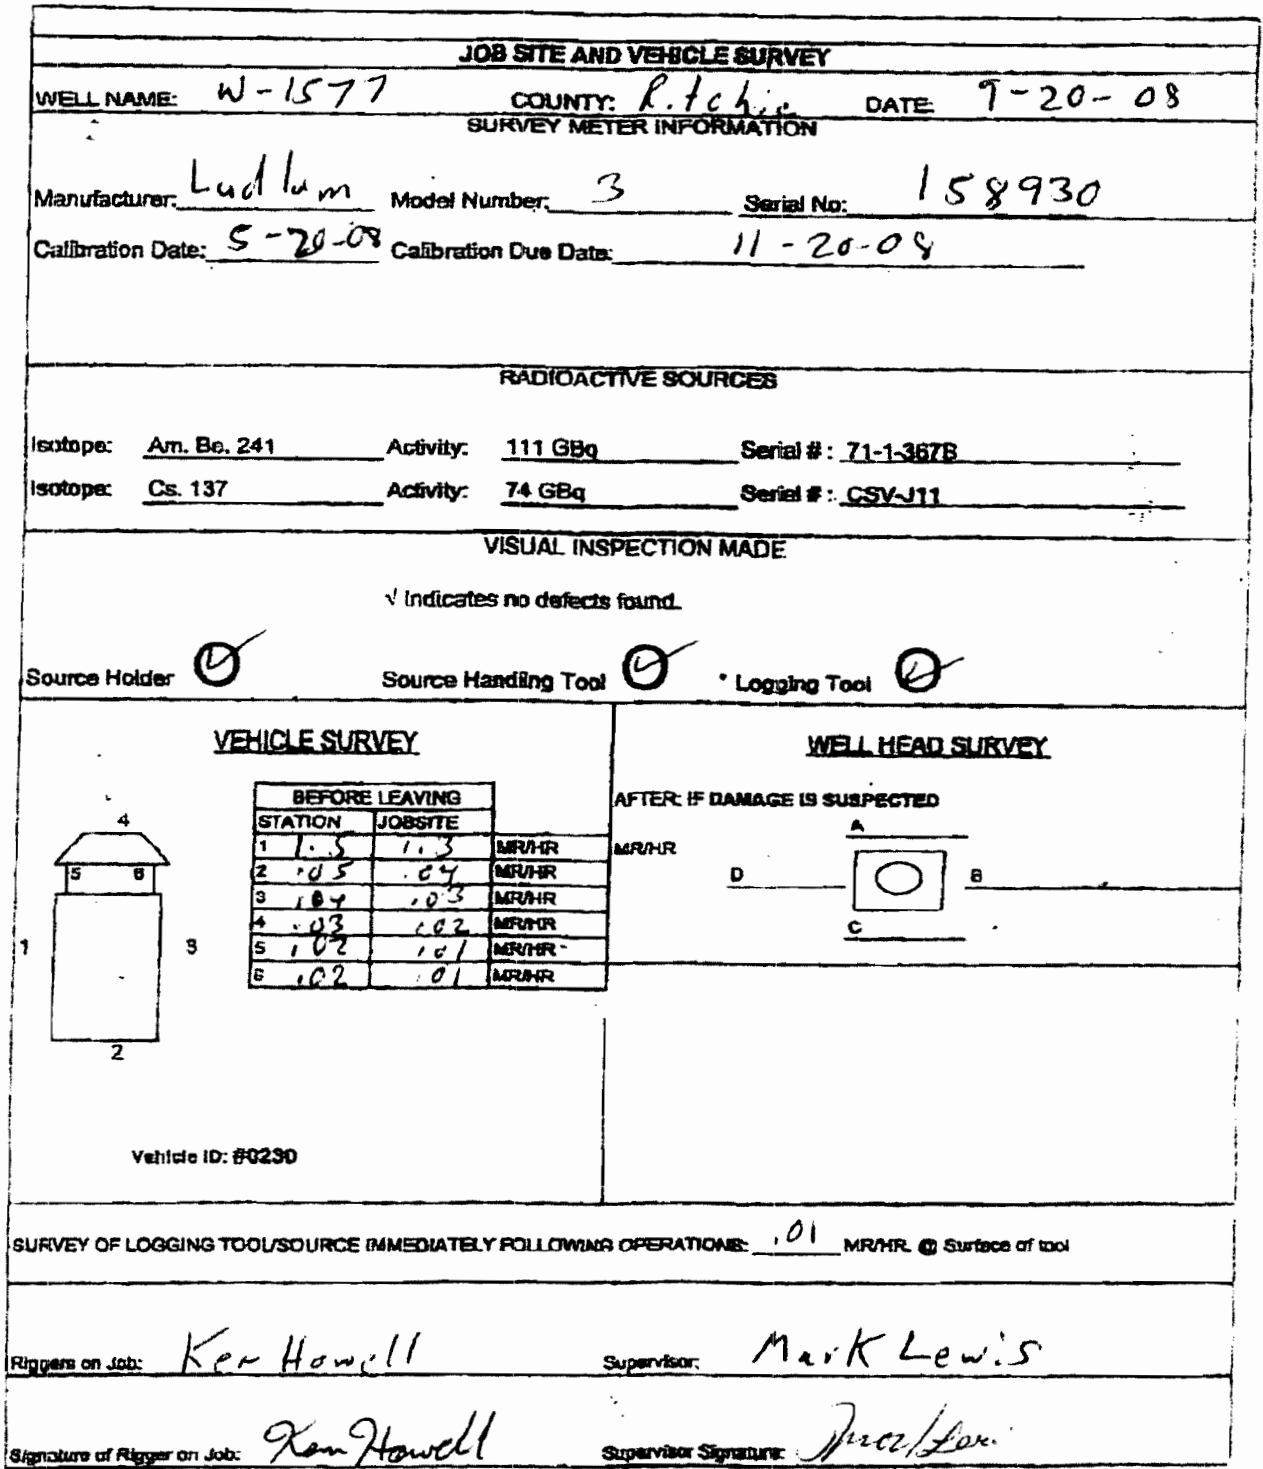 JOB SITE AND VEHICLE SURVEY
WELL NAME: W-1577 COUNTY: Ritchie DATE: 9-20-08
SURVEY METER INFORMATION
Manufacturer: Ludlum Model Number: 3 Serial No: 158930
Calibration Date: 5-20-08 Calibration Due Date: 11-20-08
RADIOACTIVE SOURCES
Isotope: Am. Be. 241 Activity: 111 GBq Serial #: 71-1-367B
Isotope: Cs. 137 Activity: 74 GBq Serial #: CSV-J11
VISUAL INSPECTION MADE
√ Indicates no defects found.
Source Holder ✓ Source Handling Tool ✓ * Logging Tool ✓
VEHICLE SURVEY
BEFORE LEAVING
STATION JOBSITE
1 1.5 1.3 MR/HR
2 .05 .04 MR/HR
3 .04 .03 MR/HR
4 .03 .02 MR/HR
5 .02 .01 MR/HR
6 .02 .01 MR/HR
4
5 6
1 3
2
Vehicle ID: #0230
WELL HEAD SURVEY
AFTER: IF DAMAGE IS SUSPECTED
MR/HR
A
D B
C
SURVEY OF LOGGING TOOL/SOURCE IMMEDIATELY FOLLOWING OPERATIONS: .01 MR/HR. @ Surface of tool
Riggers on Job: Ken Howell Supervisor: Mark Lewis
Signature of Rigger on Job: Ken Howell Supervisor Signature: